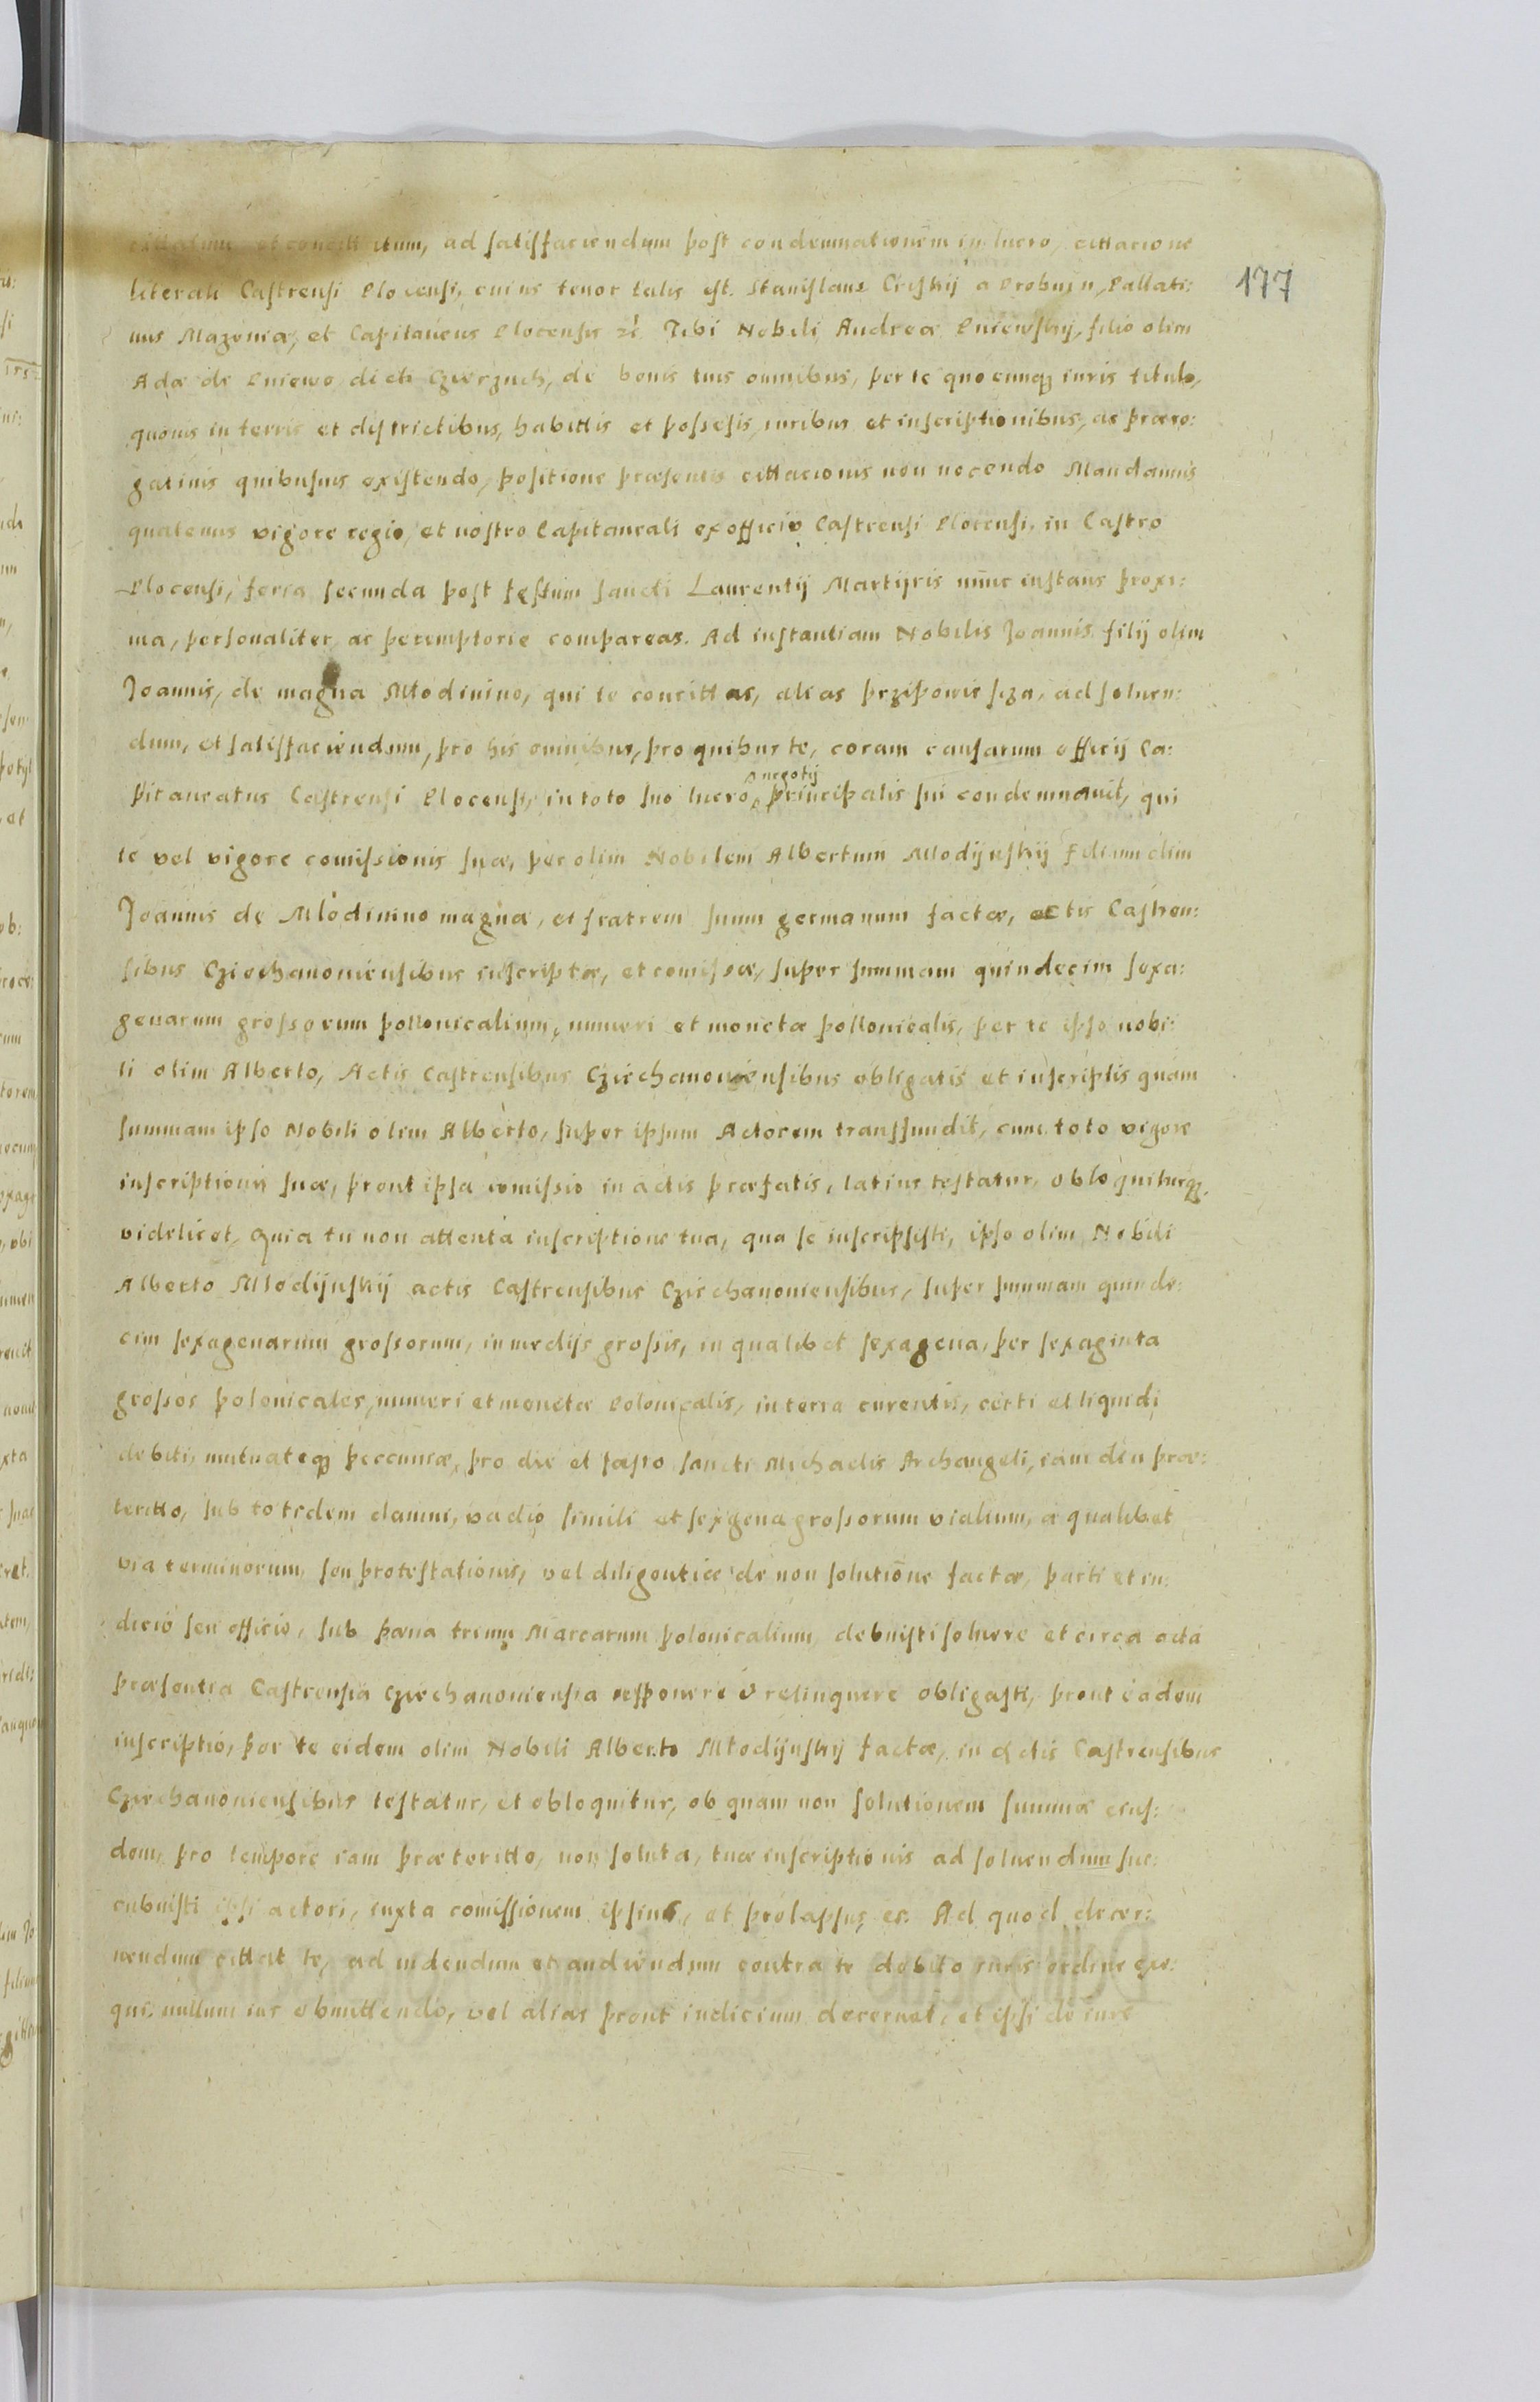 et concittatum, ad satisfaciendum post condemnationem in lucro, cittatione
177
literali Castrensi Plocensi, cuius tenor talis est. Stanislaus Criskij a Drobnin, Pallati:
nus Mazoniæ, et Capitaneus Plocensis Tibi Nobili Andreæ Pniewskij, filio olim
Adæ de Pniewo dicti de bonis tuis omnibus, per te quocunq iuris titulo,
quonis in terris et districtibus, habittis et possesis, iuribus et inscriptionibus, ac præro:
gatinis quibusuis existendo, positione præsentis cittacionis non nocendo Mandamus
quatenus vigore regio, et nostro Capitaneali ex officio Castrensi Plocensi, in Castro
Plocensi, feria secunda post festum sancti Laurentij Martijris nunc instans proxi:
ma, personaliter ac peremptorie compareas. Ad instantiam Nobilis Joannis filij olim
Joannis, de magna Mlodinino, qui te concittas, alias przipowisscza, ad soluen:
dum, et satisfaciendum, pro his omnibus, pro quibus te, coram causarum officij Ca:
negotij
pitaneatus Castrensi Plocensi, in toto suo lucro principalis sui condemnauit, qui
te vel vigore comissionis suæ, per olim Nobilem Albertum Mlodijnskij filium olim
Joannis de Mlodinino magna, et fratrem suum germanum factæ, actis Castren:
sibus Cziechanoniensibus inscriptæ, et comissæ, super summam quindecim sexa:
genarum grossorum pollonicalium, numeri et monetæ pollonicalis, per te ipso nobi:
li olim Alberto, Actis Castrensibus Cziechanoniensibus obligatis et inscriptis quam
summam ipso Nobili olim Alberto, super ipsum Actorem transfundit, cum toto vigore
inscriptionis suæ, prout ipsa comissio in actis præfatis, latius testatur, obloquiturq
videlicet, Quia tu non attenta inscriptione tua, qua se inscripsisti, ipso olim Nobili
Alberto Mlodijnskij actis Castrensibus Cziechanoniensibus, super summam quinde:
cim sexagenarum grossorum, in medijs grossis, in qualibet sexagena, per sexaginta
grossos polonicales, numeri et monetæ Polonicalis, in terra curentis, certi et liquidi
debiti, mutuateq peccuniæ, pro die et fæsto sancti Michaelis Archangeli, iam diu præ:
teritto, sub totidem damni, vadio simili et sexgena grossorum vialium, a qualibet
via terminorum, seu protestationis, vel diligentiæ de non solutione factæ, parti et iu:
dicio seu officio, sub pæna trium Marcarum polonicalium, debuisti soluere et circa acta
præsentia Castrensia Cziechanoniensia reponere relinquere obligasti, prout eadem
inscriptio, per te eidem olim Nobili Alberto Mlodijnskij factæ, in actis Castrensibus
Cziechanoniensibus testatur, et obloquitur, ob quam non solutionem summæ eius:
dem, pro tempore iam præteritto, non soluta, tuæ inscriptionis ad soluendum suc:
cubuisti ipsi actori, iuxta comissionem ipsius, et prolapsus es. Ad quod decer:
nendum cittat te, ad uidendum et audiendum contra te debito iuris ordine exe:
qui, nullum ius obmittendo, vel alias prout iudicium decernet, et ipsi de iure